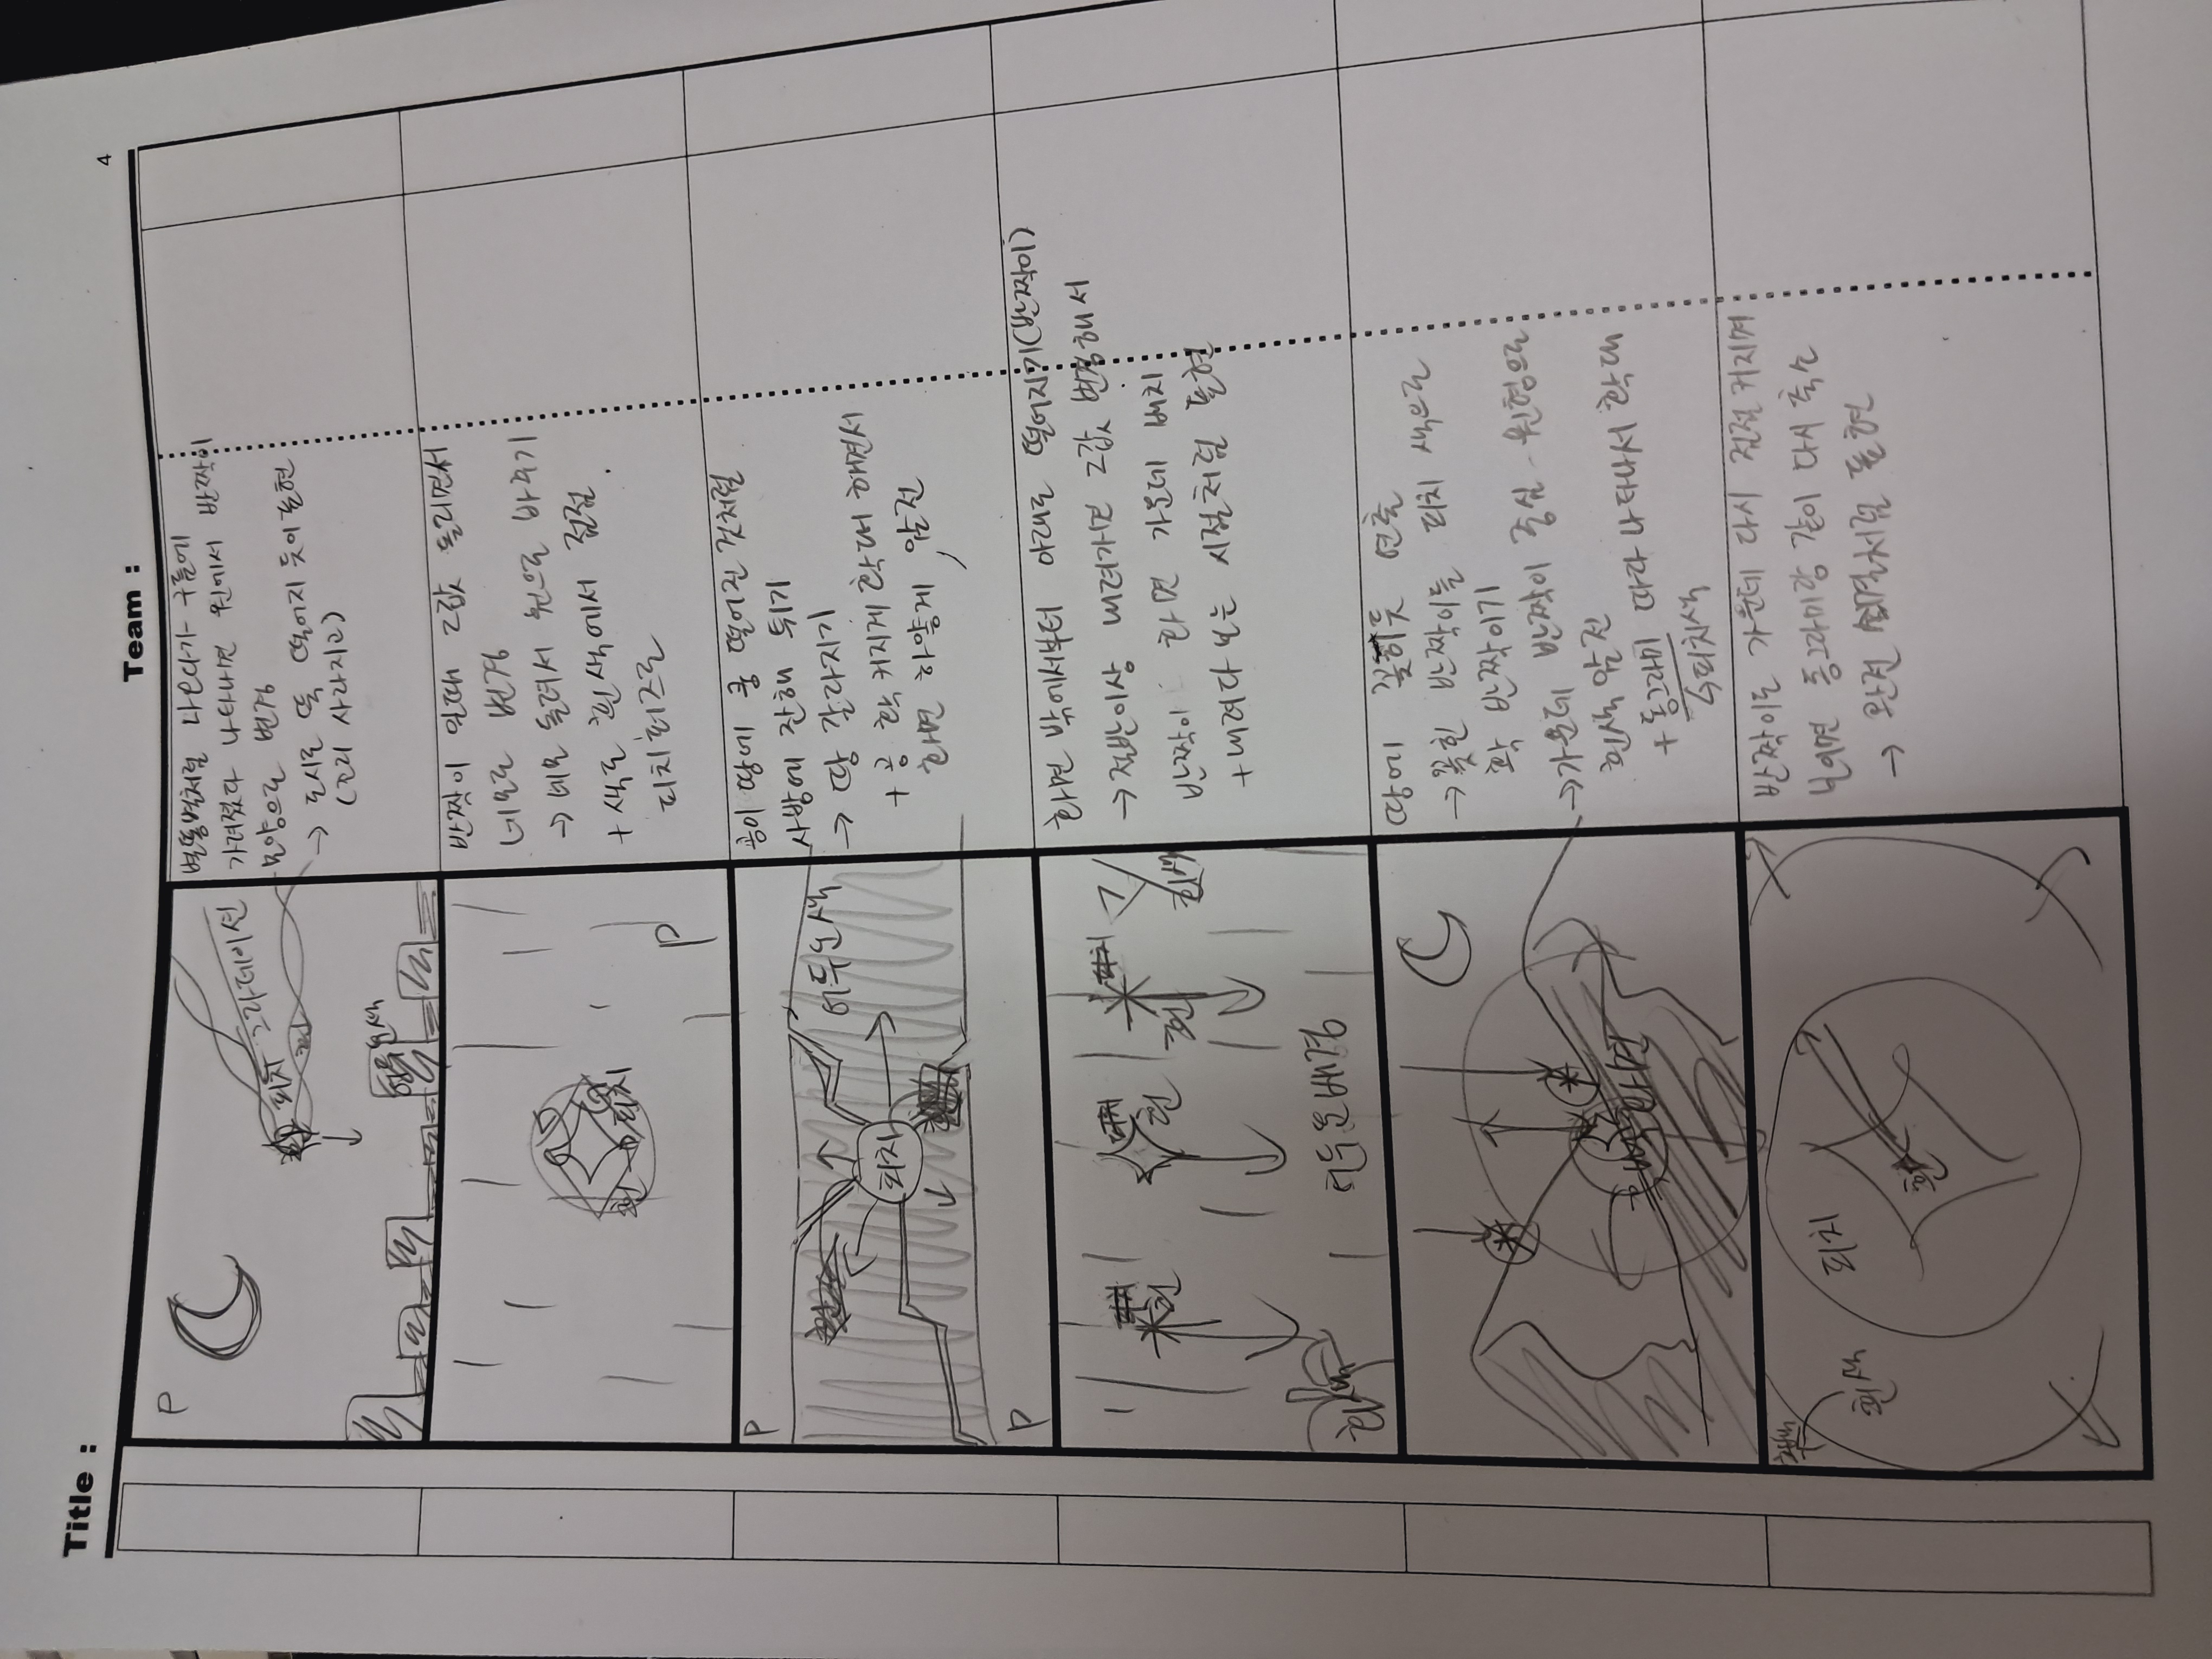 Title :
4
Team :
P
피치 그라데이션
흰
어두운색
별똥별처럼 나오다가 구름에
가려졌다 나타나면 원에서 반짝이
모양으로 변경
→ 도시로 뚝 떨어지듯이 표현
(꼬리 사라지고)
흰 → 피치
P
반짝이 일때 그값 돌리면서
네모로 변경
→ 네모 돌려서 원으로 바꾸기
+ 색도 흰색에서 점점
피치퍼즈로
P
어두운색
피치
P
공이 땅에 쿵 떨어진 것처럼
사방에 잔해 튀기
→ 땅 갈라지기
+ 공 확 커지게 확대 해면서
화면 하얗게 암전
피치 피치 피치
흰 흰 흰 흰색
흰색
어두운배경
화면 밖에서부터 아래로 떨어지기(반짝이)
→ 절반이상 내려가면 그값 변경해서
반짝이 화면 가운데 배치
+ 내려다 보는 시점처럼 표현
화면
땅에 꽂히듯 연출
→ 꽂힌 반짝이들 피치 색으로
확 반짝이기
→ 가운데 반짝이 중심 원형으로
흰색 암전
+ 동그라미 따라 나타나서 확대
↳ 피치색
피치
흰색
흰
반짝이도 가운데 다시 점점 커지며
보이면 동그라미랑 같이 다시 축소
→ 완전 처럼 표현